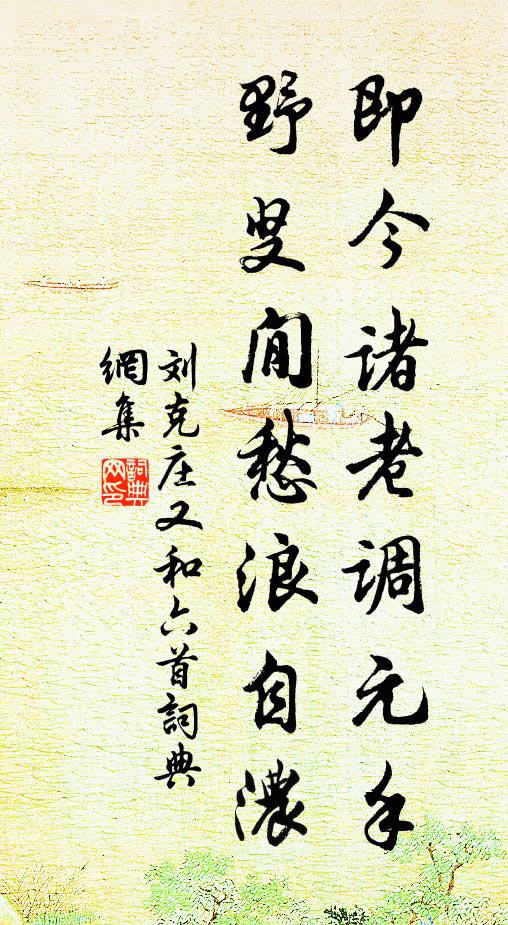 即今诸老调元手
野叟闲愁浪自濃
刘克庄又和六首詞典
網集
詞典网印